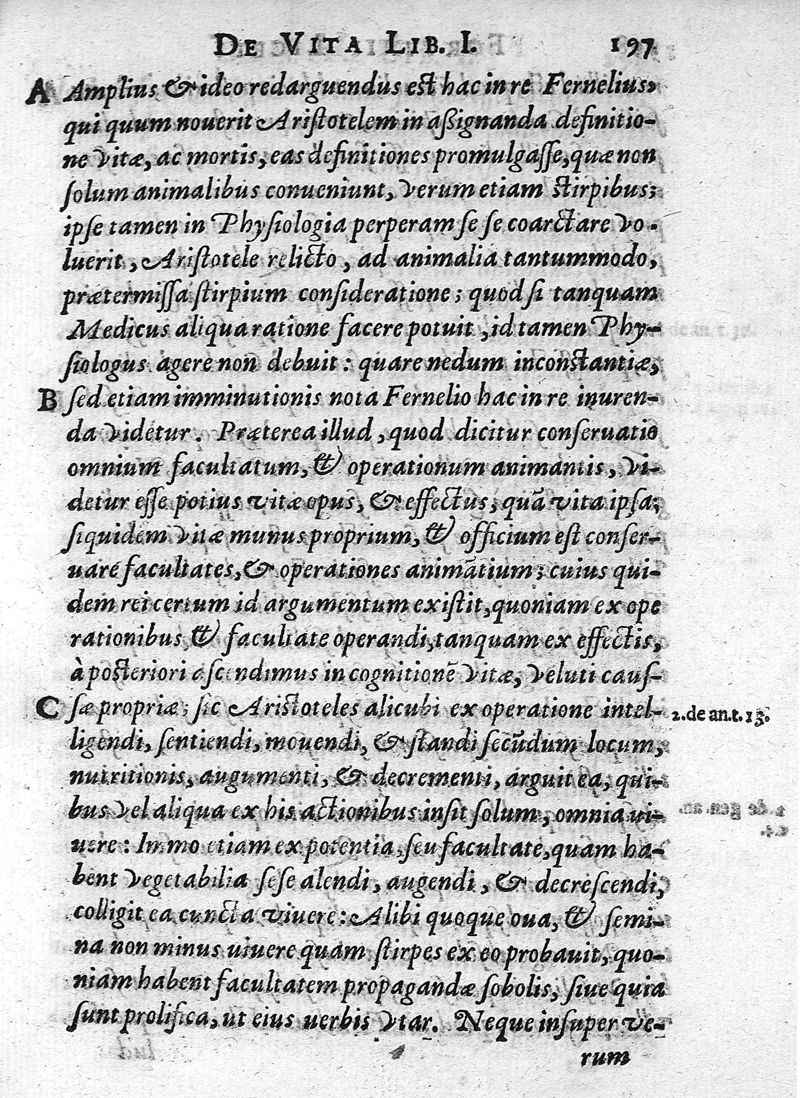 DE VITA LIB. I. 197
A Amplius & ideo redarguendus est hac in re Fernelius,
qui quum nouerit Aristotelem in aßignanda definitio-
ne vitæ, ac mortis, eas definitiones promulgasse, quæ non
solum animalibus conueniunt, verum etiam stirpibus;
ipse tamen in Physiologia perperam se se coarctare vo-
luerit, Aristotele relicto, ad animalia tantummodo,
prætermissa stirpium consideratione; quod si tanquam
Medicus aliqua ratione facere potuit, id tamen Phy-
siologus agere non debuit: quare nedum inconstantiæ,
B sed etiam imminutionis nota Fernelio hac in re inuren-
da videtur. Præterea illud, quod dicitur conseruatio
omnium facultatum, & operationum animantis, vi-
detur esse potius vitæ opus, & effectus, quã vita ipsa;
siquidem vitæ munus proprium, & officium est conser-
uare facultates, & operationes animãtium; cuius qui-
dem rei certum id argumentum existit, quoniam ex ope
rationibus, & facultate operandi, tanquam ex effectis,
à posteriori ascendimus in cognitionẽ vitæ, veluti caus-
C sæ propriæ; sic Aristoteles alicubi ex operatione intel-
2. de an. t. 13.
ligendi, sentiendi, mouendi, & standi secũdum locum,
nutritionis, augumenti, & decrementi, arguit ea, qui-
bus vel aliqua ex his actionibus insit solum, omnia ui-
uere: Immo etiam ex potentia, seu facultate, quam ha-
bent vegetabilia sese alendi, augendi, & decrescendi,
colligit ea cuncta viuere: Alibi quoque oua, & semi-
na non minus uiuere quam stirpes ex eo probauit, quo-
niam habent facultatem propagandæ sobolis, siue quia
sunt prolifica, ut eius uerbis vtar. Neque insuper ve-
rum